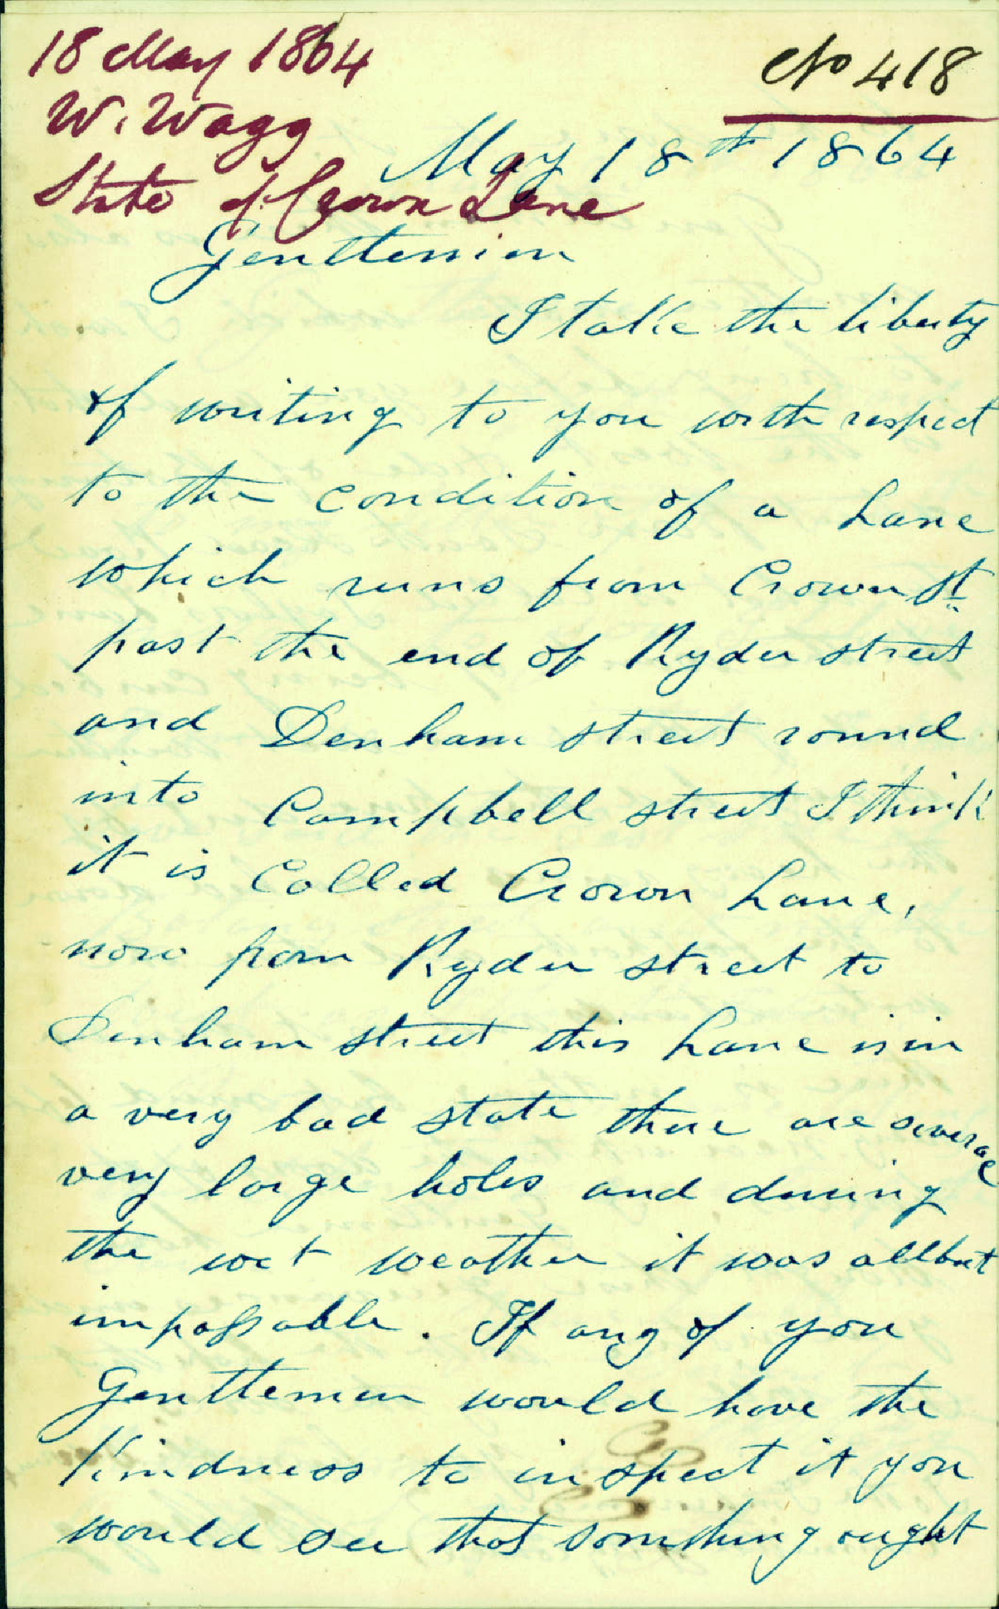 18 May 1864
No 418
W. Wagg
State of Crown Lane
May 18th 1864
Gentlemen
I take the liberty
of writing to you with respect
to the condition of a Lane
which runs from Crown St
past the end of Ryder street
and Denham street round
into Campbell street I think
it is Called Crown Lane,
now from Ryder street to
Denham street this Lane is in
a very bad state there are several
very large holes and during
the wet weather it was all but
impassable. If any of you
Gentlemen would have the
Kindness to inspect it you
would see that something ought